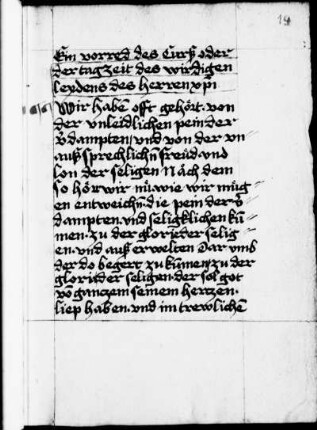 14
Ein vorred des Curß oder
der tagzeit des wirdigen
leydens des herren xpi
Wir habẽ offt gehört von
der vnleidlichen pein der
v̾dampten vnd von der vn
außsprechlichñ freüd vnd
lon der seligen Nach dem
so hör wir nu wie wir müg
en entweichñ die pein der v̾
dampten vnd seligklichen kũ
men zu der glori der selig
en vnd außerwelten Dar vmb
der do begert zu kũmen zu der
glori der seligen der sol got
võ ganczem seinem herczen
liep haben vnd im trewlichẽ